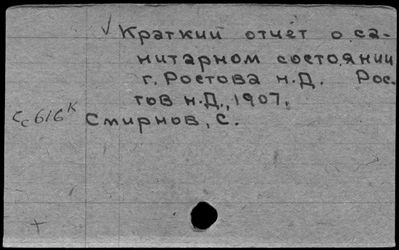 √ Краткий отчет о са-
нитарном состоянии
г. Ростова н.Д. Рос-
тов н.Д., 1907.
Cc616К
Смирнов, С.
+